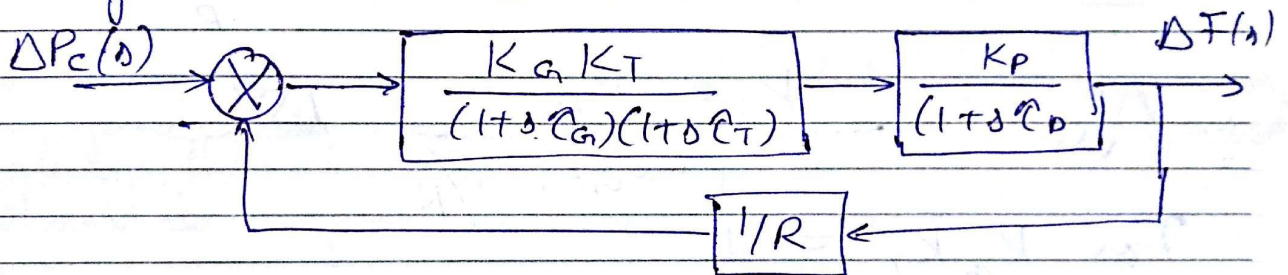 ΔPc(s)
KG KT
(1+s.τG)(1+sτT)
KP
(1+sτP
ΔF(s)
1/R